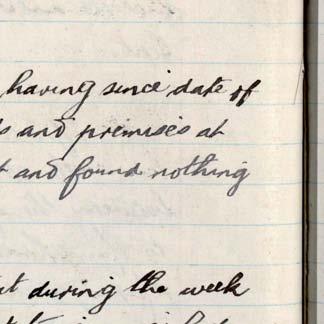 having since date of
and premises at
and found nothing
during the week